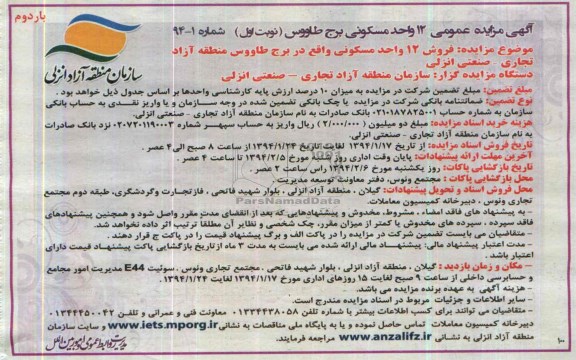 بار دوم
سازمان منطقه آزاد انزلی
آگهی مزایده عمومی ۱۲ واحد مسکونی برج طاووس (نوبت اول) شماره ۱-۹۴
موضوع مزایده: فروش ۱۲ واحد مسکونی واقع در برج طاووس منطقه آزاد
تجاری - صنعتی انزلی
دستگاه مزایده گزار: سازمان منطقه آزاد تجاری – صنعتی انزلی
مبلغ تضمین: مبلغ تضمین شرکت در مزایده به میزان ۱۰ درصد ارزش پایه کارشناسی واحدها بر اساس جدول ذیل خواهد بود.
نوع تضمین: ضمانتنامه بانکی شرکت در مزایده یا چک بانکی تضمین شده در وجه سازمان و یا واریز نقدی به حساب بانکی
سازمان به شماره حساب ۰۲۱۰۱۸۷۸۲۵۰۰۱ بانک صادرات به نام سازمان منطقه آزاد تجاری - صنعتی انزلی.
هزینه خرید اسناد مزایده: مبلغ دو میلیون (۲/۰۰۰/۰۰۰) ریال واریز به حساب سپهر شماره ۰۲۰۷۳۰۱۱۹۰۰۰۳ نزد بانک صادرات
به نام سازمان منطقه آزاد تجاری - صنعتی انزلی.
تاریخ فروش اسناد مزایده: از تاریخ ۱۳۹۴/۱/۱۷ لغایت تاریخ ۱۳۹۴/۱/۲۴ از ساعت ۸ صبح الی ۴ عصر.
آخرین مهلت ارائه پیشنهادات: پایان وقت اداری روز شنبه مورخ ۱۳۹۴/۲/۵ تا ساعت ۴ عصر.
تاریخ بازگشایی پاکات: روز یکشنبه مورخ ۱۳۹۴/۲/۶ راس ساعت ۲ عصر.
محل بازگشایی پاکات: مجتمع ونوس، دفتر معاونت توسعه مدیریت.
محل فروش اسناد و تحویل پیشنهادات: گیلان، منطقه آزاد انزلی، بلوار شهید فاتحی، فاز تجارت و گردشگری، طبقه دوم مجتمع
تجاری ونوس، دبیرخانه کمیسیون معاملات.
- به پیشنهاد های فاقد امضاء، مشروط، مخدوش و پیشنهادهایی که بعد از انقضای مدت مقرر واصل شود و همچنین پیشنهادهای
فاقد سپرده، سپرده های مخدوش یا کمتر از میزان مقرر، چک شخصی و نظایر آن مطلقاً ترتیب اثر داده نخواهد شد.
- متقاضیان می بایست تضمین شرکت در مزایده را در پاکت الف و برگ پیشنهاد قیمت را در پاکت ج قرار دهند.
- مدت اعتبار پیشنهاد مالی: پیشنهاد مالی ارائه شده می بایست به مدت ۳ ماه از تاریخ بازگشایی پاکت پیشنهاد قیمت دارای
اعتبار باشد.
- مکان و زمان بازدید: گیلان، منطقه آزاد انزلی، بلوار شهید فاتحی، مجتمع تجاری ونوس، سوئیت E44 مدیریت امور مجامع
و حسابرسی داخلی از ساعت ۹ صبح لغایت ۱۵ روزهای اداری مورخ ۱۳۹۴/۱/۱۷ لغایت ۱۳۹۴/۱/۲۴.
- هزینه آگهی به عهده برنده مزایده می باشد.
- سایر اطلاعات و جزئیات مربوط در اسناد مزایده مندرج است.
- متقاضیان می توانند برای کسب اطلاعات بیشتر با شماره تلفن ۰۱۳۴۴۴۳۸۰۵۸ معاونت فنی و عمرانی و تلفن ۰۱۳۴۴۴۵۰۰۴۲
دبیرخانه کمیسیون معاملات تماس حاصل نموده و یا به پایگاه ملی مناقصات به نشانی www.iets.mporg.ir و سایت سازمان
منطقه آزاد انزلی به نشانی www.anzalifz.ir مراجعه فرمایند.
۱۰۰
ParsNamadData